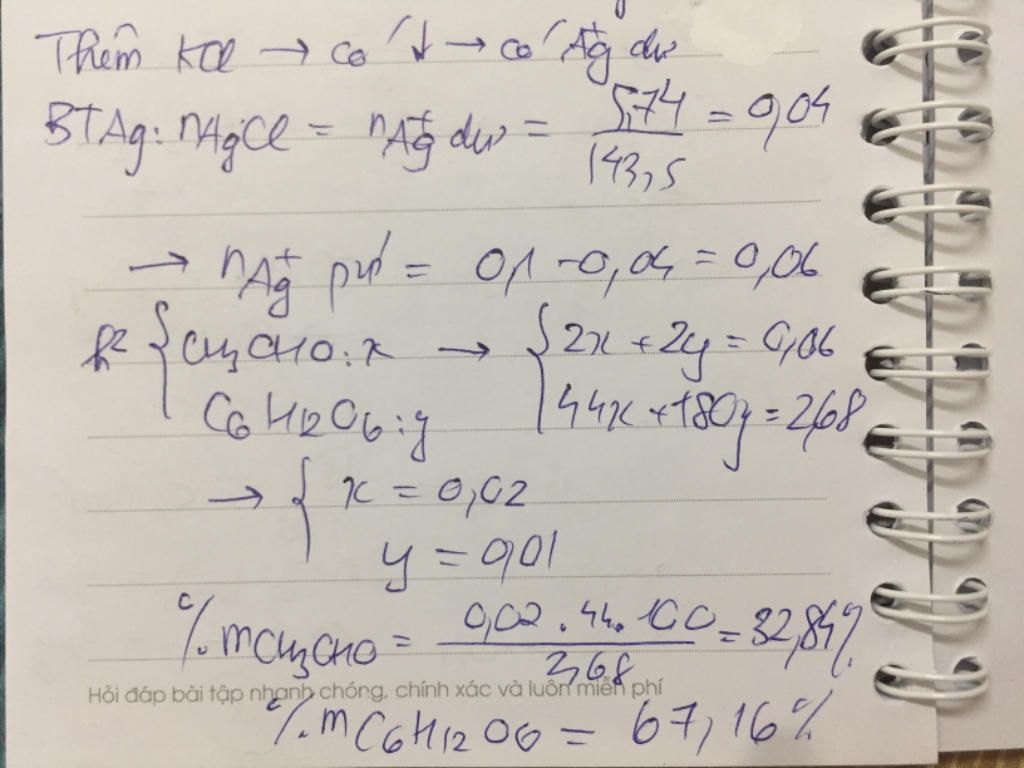 Thêm KCl → có ↓ → có Ag+ dư
BTAg: nAgCl = nAg+ dư = 5,74 / 143,5 = 0,04
→ nAg+ pứ = 0,1 - 0,04 = 0,06
h² { CH3CHO: x → { 2x + 2y = 0,06
C6H12O6: y 44x + 180y = 2,68
→ { x = 0,02
y = 0,01
%mCH3CHO = 0,02 . 44 . 100 / 2,68 = 32,84%
Hỏi đáp bài tập nhanh chóng, chính xác và luôn miễn phí
%mC6H12O6 = 67,16%